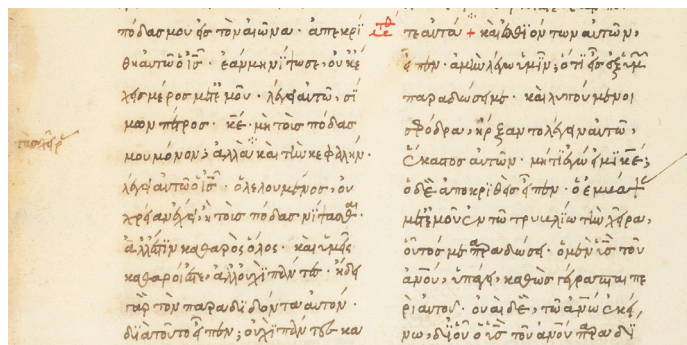 πόδας μου εἰς τὸν αἰῶνα· ἀπεκρί
θη αὐτῶ ὁ ἰ̅ς̅· ἐὰν μὴ νίψω σε, οὐκ ἔ
χεις μέρος μετ' ἐμοῦ· λέγει αὐτῶ, σί
μων πέτρος· κ̅ε̅· μὴ τοὺς πόδας
μου μόνον; ἀλλὰ καὶ τὴν κεφαλήν·
λέγει αὐτῶ ὁ ἰ̅ς̅· ὁ λελουμένος, οὐ
χρείαν ἔχει, ἢ τοὺς πόδας νίψασθαι·
ἀλλ' ἔστιν καθαρὸς ὅλος· καὶ ὑμεῖς
καθαροί ἐστε, ἀλλ' οὐχὶ πάντες· ἤδει
γὰρ τὸν παραδιδόντα αὐτόν·
διὰ τοῦτο εἶπεν; οὐχὶ πάντες κα
τε αὐτά + καὶ ἐσθιόντων αὐτῶν,
εἶπεν· ἀμὴν λέγω ὑμῖν; ὅτι εἷς ἐξ ὑμῶν
παραδώσει με· καὶ λυπούμενοι
σφόδρα, ἤρξαντο λέγειν αὐτῶ,
ἕκαστος αὐτῶν· μήτι ἐγώ εἰμι κ̅ε̅;
ὁ δὲ ἀποκριθεὶς εἶπεν· ὁ ἐμβάψας
μετ' ἐμοῦ ἐν τῶ τρυβλίω τὴν χεῖρα,
οὗτός με παραδώσει· ὁ μὲν υ̅ἱ̅ς̅ τοῦ
ἀ̅ν̅ο̅υ̅, ὑπάγει, καθὼς γέγραπται πε
ρὶ αὐτοῦ· οὐαὶ δὲ, τῶ ἀ̅ν̅ω̅ ἐκεί
νω, δι' οὗ ὁ υ̅ἱ̅ς̅ τοῦ ἀ̅ν̅ο̅υ̅ παραδί